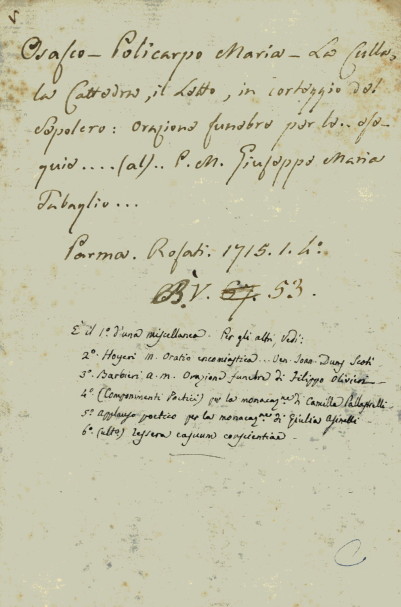 Osasco - Policarpo Maria - La Culla,
la Cattedra, il Letto, in corteggio del
Sepolcro: orazione funebre per le.. ese-
quie....(al).. P. M. Giuseppe Maria
Tabaglio...
Parma. Rosati. 1715. 1. 4º
B. V. 67. 53.
È il 1º d'una miscellanea. Per gli altri, vedi:
2º. Hoyeri M. Oratio encomiastica... Ven. Joan. Duns Scoti
3º. Barbieri, A. M. Orazione funebre di Filippo Olivieri
4º. (Componimenti Poetici) per la monacazne di Camilla
5º. Applauso poetico per la monacazne di Giulia Asinelli
6º. (altro) Tessera casuum conscientiae